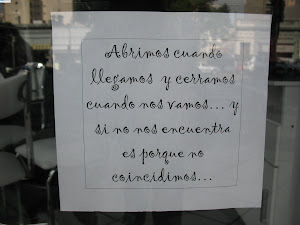 Abrimos cuando
llegamos y cerramos
cuando nos vamos... y
si no nos encuentra
es porque no
coincidimos...